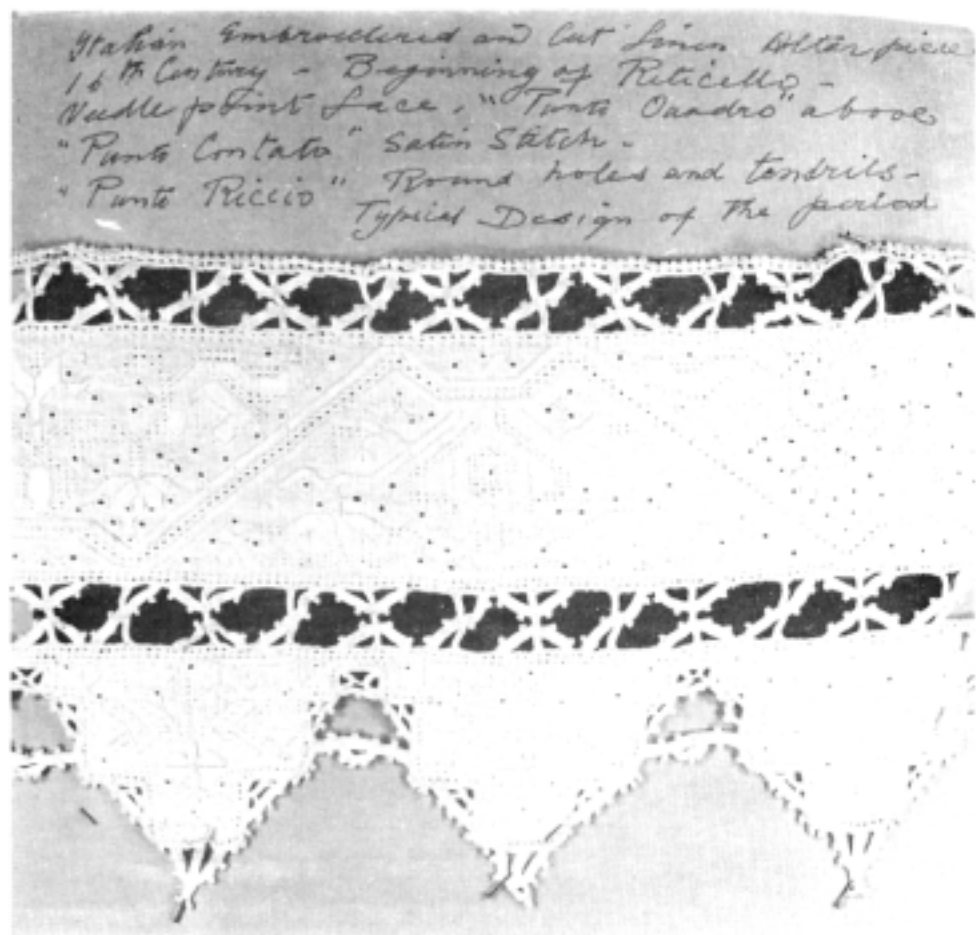 Italian Embroidered and Cut Linen Altar piece
16th Century - Beginning of Reticello -
Needle point Lace. "Punto Quadro" above
"Punto Contato" Satin Stitch -
"Punto Riccio" Round holes and tendrils -
Typical Design of the period